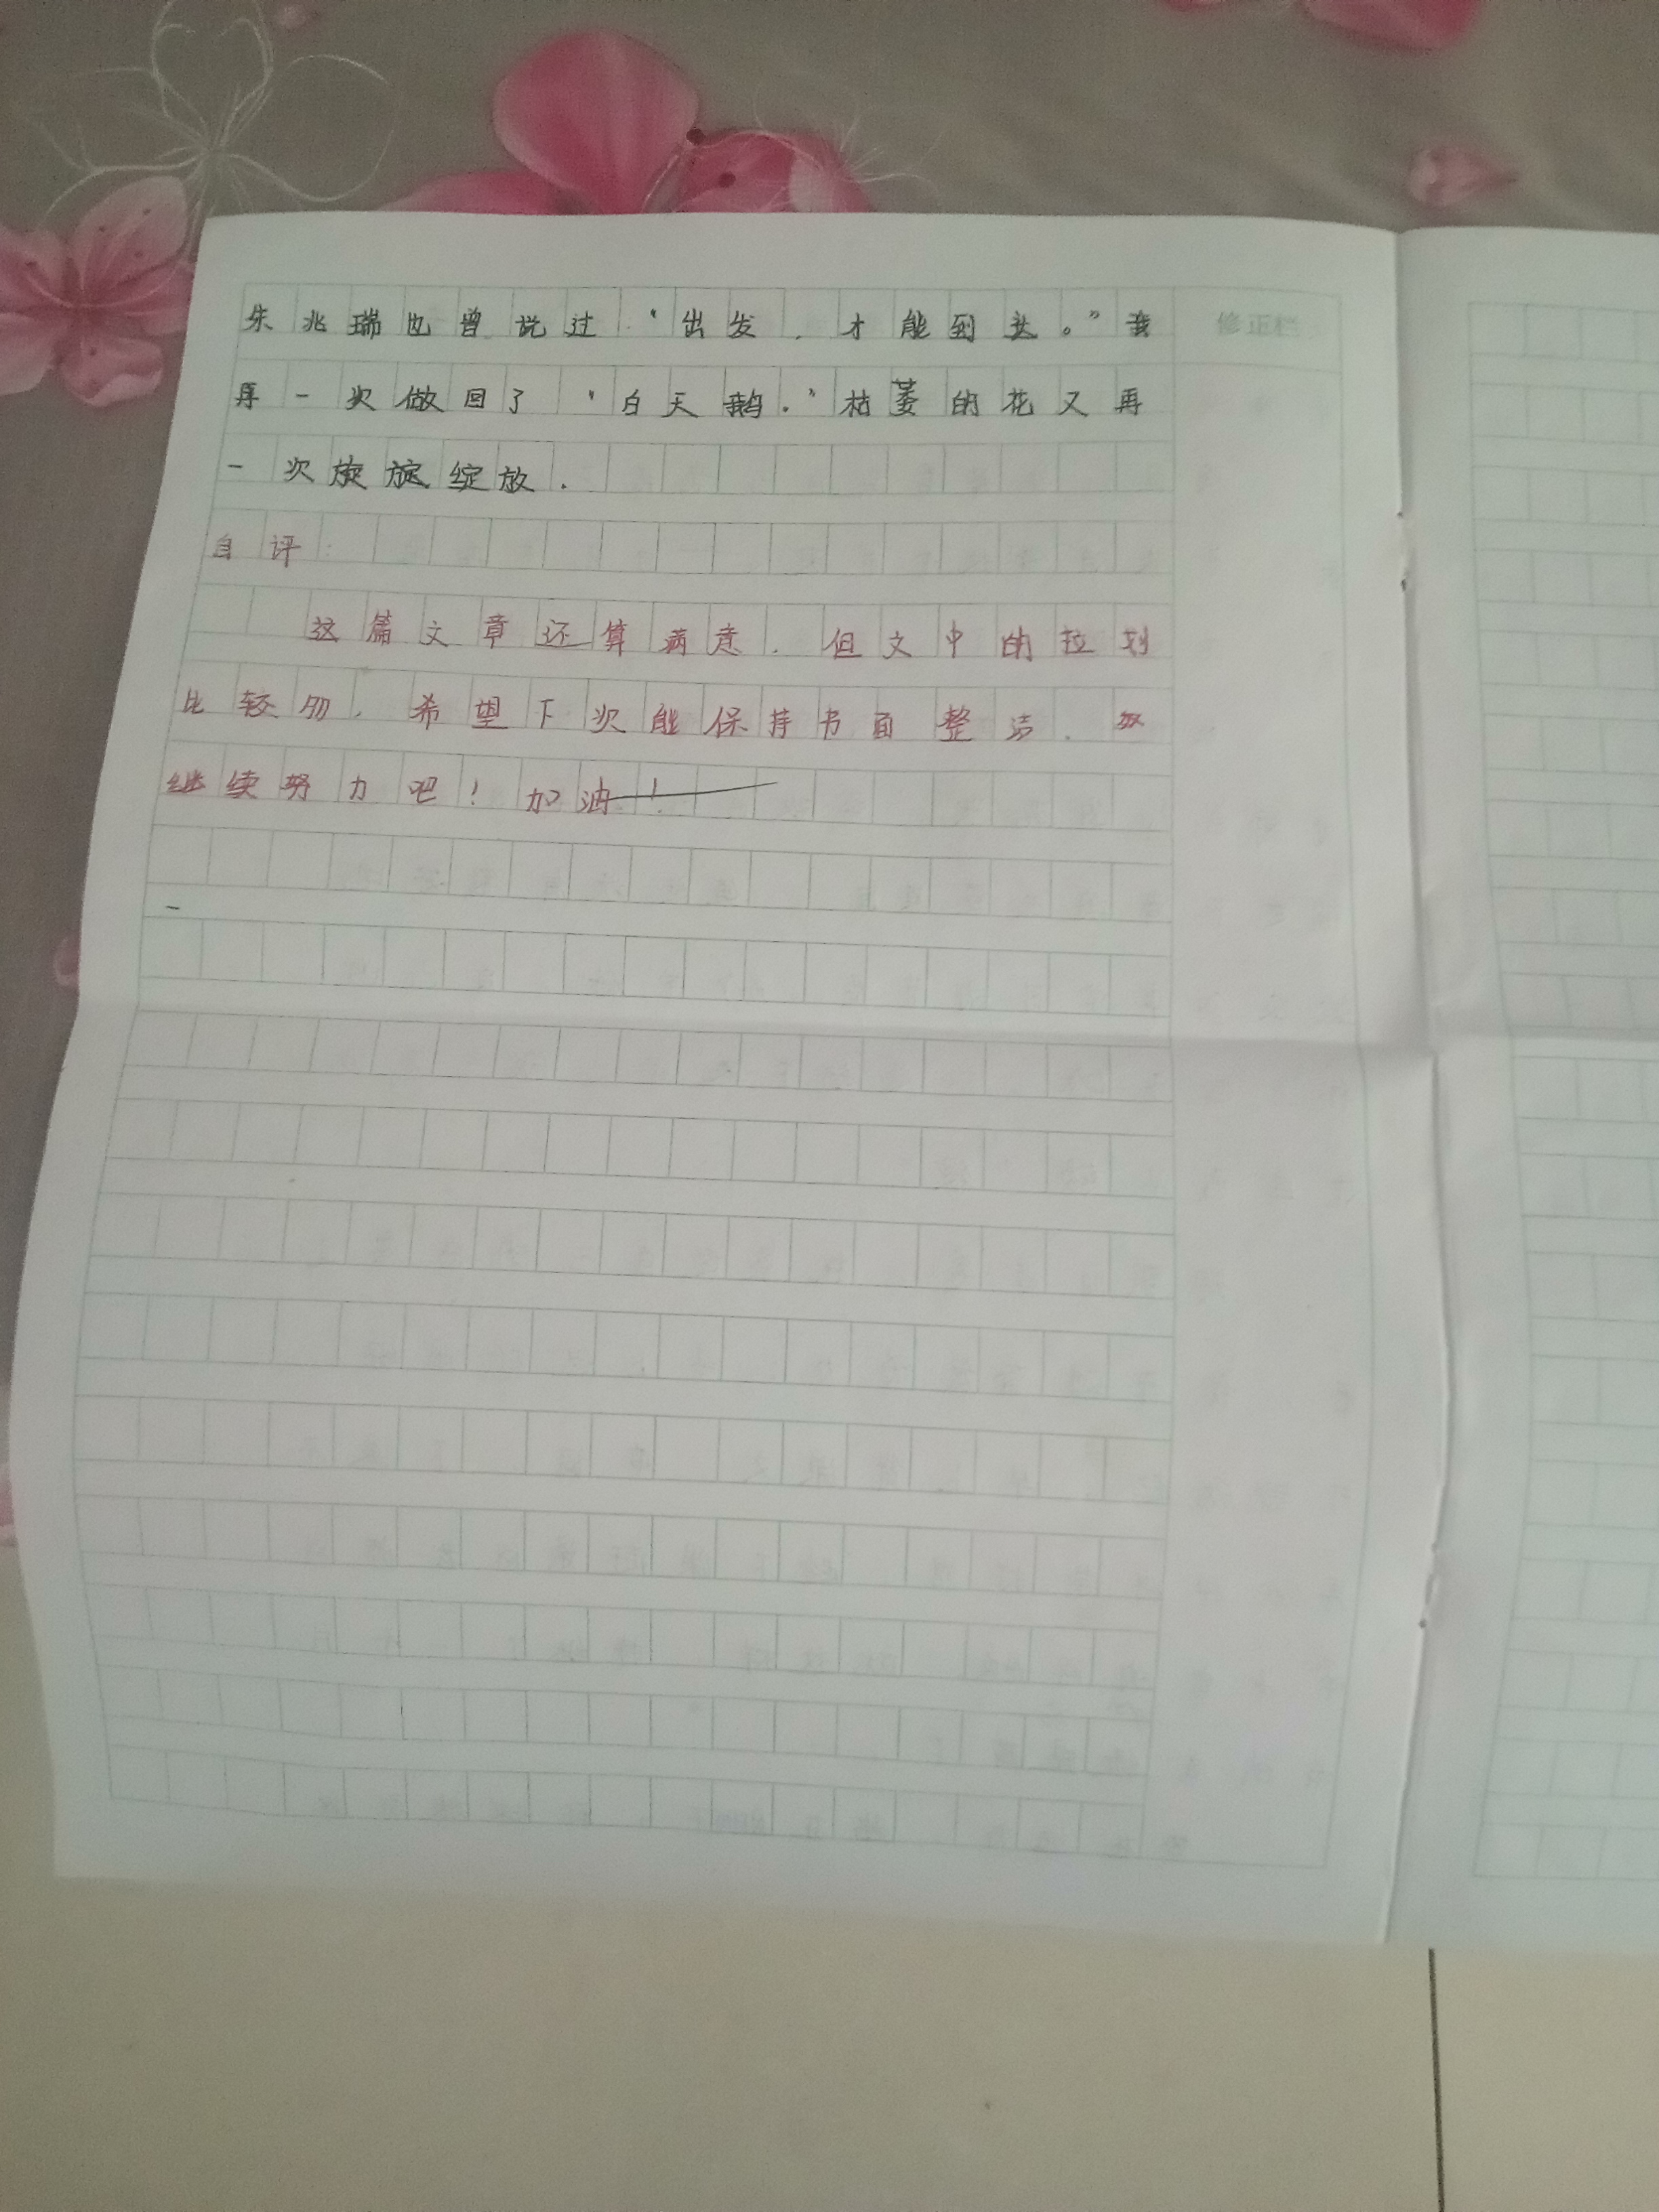 朱兆瑞也曾说过“出发，才能到达。”我
再一次做回了“白天鹅.”枯萎的花又再
一次绽放.
自评:
这篇文章还算满意.但文中的拉划
比较多,希望下次能保持书面整洁.
继续努力吧!加油!
修正栏